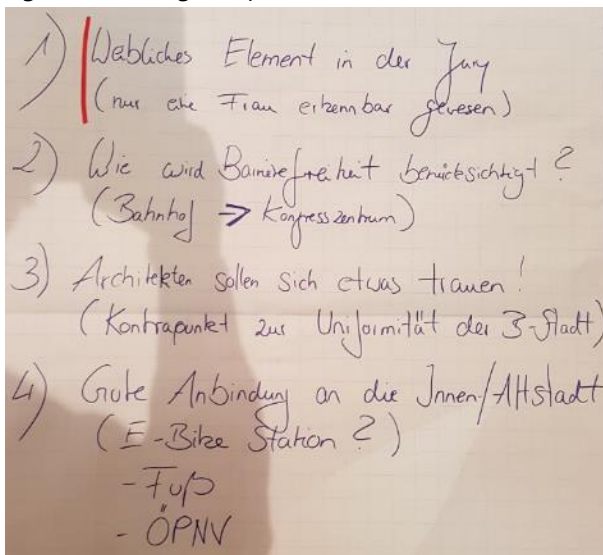 1) Weibliches Element in der Jury
(nur eine Frau erkennbar gewesen)
2) Wie wird Barrierefreiheit berücksichtigt?
(Bahnhof → Kongresszentrum)
3) Architekten sollen sich etwas trauen!
(Kontrapunkt zur Uniformität der B-Stadt)
4) Gute Anbindung an die Innen/Altstadt
(E-Bike Station?)
- Fuß
- ÖPNV